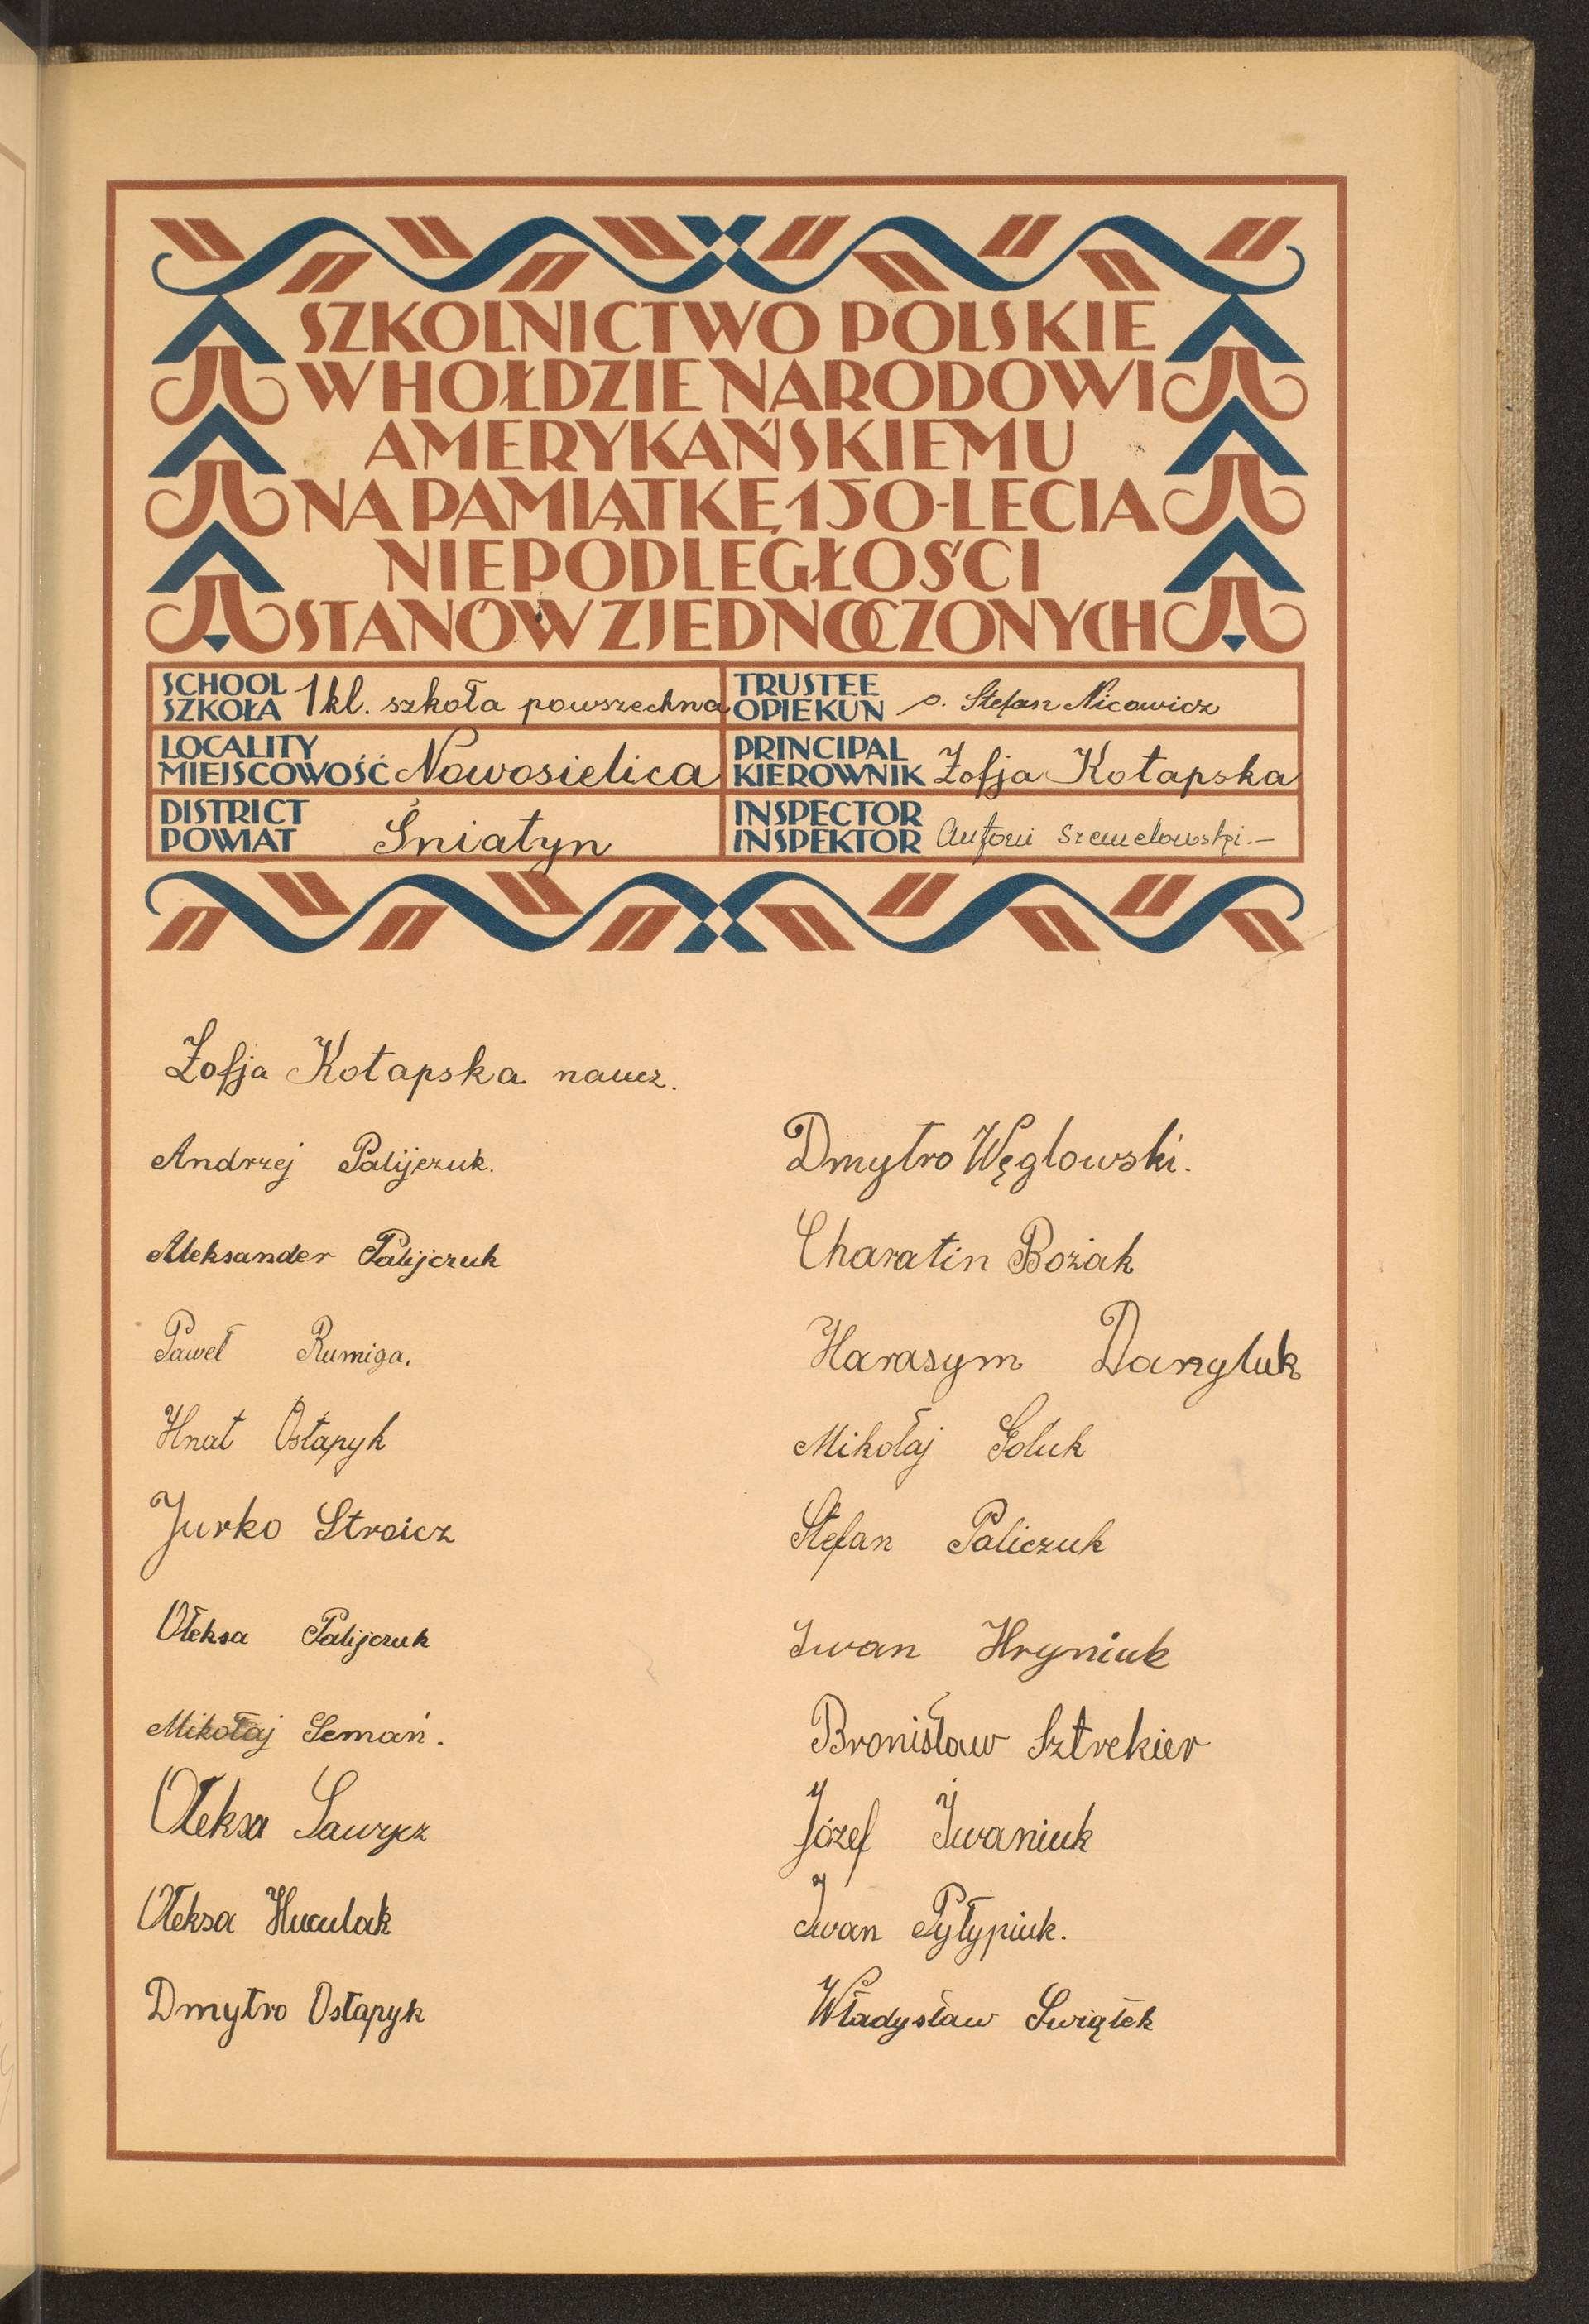 SZKOLNICTWO POLSKIE
W HOŁDZIE NARODOWI
AMERYKAŃSKIEMU
NA PAMIĄTKĘ 150-LECIA
NIEPODLEGŁOŚCI
STANÓW ZJEDNOCZONYCH
SCHOOL
SZKOŁA 1 kl. szkoła powszechna
TRUSTEE
OPIEKUN o. Stefan Nicowicz
LOCALITY
MIEJSCOWOŚĆ Nowosielica
PRINCIPAL
KIEROWNIK Zofja Kotapska
DISTRICT
POWIAT Śniatyn
INSPECTOR
INSPEKTOR Antoni
Zofja Kotapska naucz.
Andrzej Palijczuk.
Aleksander Palijczuk
Paweł Rumiga.
Hnat Ostapyk
Jurko Stroicz
Ołeksa Palijczuk
Mikołaj Semań.
Ołeksa Ławrycz
Ołeksa Huculak
Dmytro Ostapyk
Dmytro Węglowski.
Charatin Bożak
Harasym Danyluk
Mikołaj Goluk
Stefan Paliczuk
Iwan Hryniuk
Bronisław Sztrekier
Józef Iwaniuk
Iwan Pyłypiuk.
Władysław Swiątek